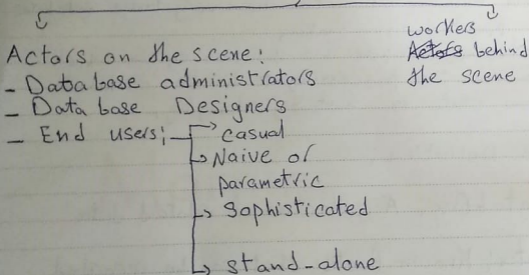 Actors on the scene:
- Database administrators
- Database Designers
- End users;
casual
Naive or
parametric
Sophisticated
stand-alone
workers
Actors behind
the scene